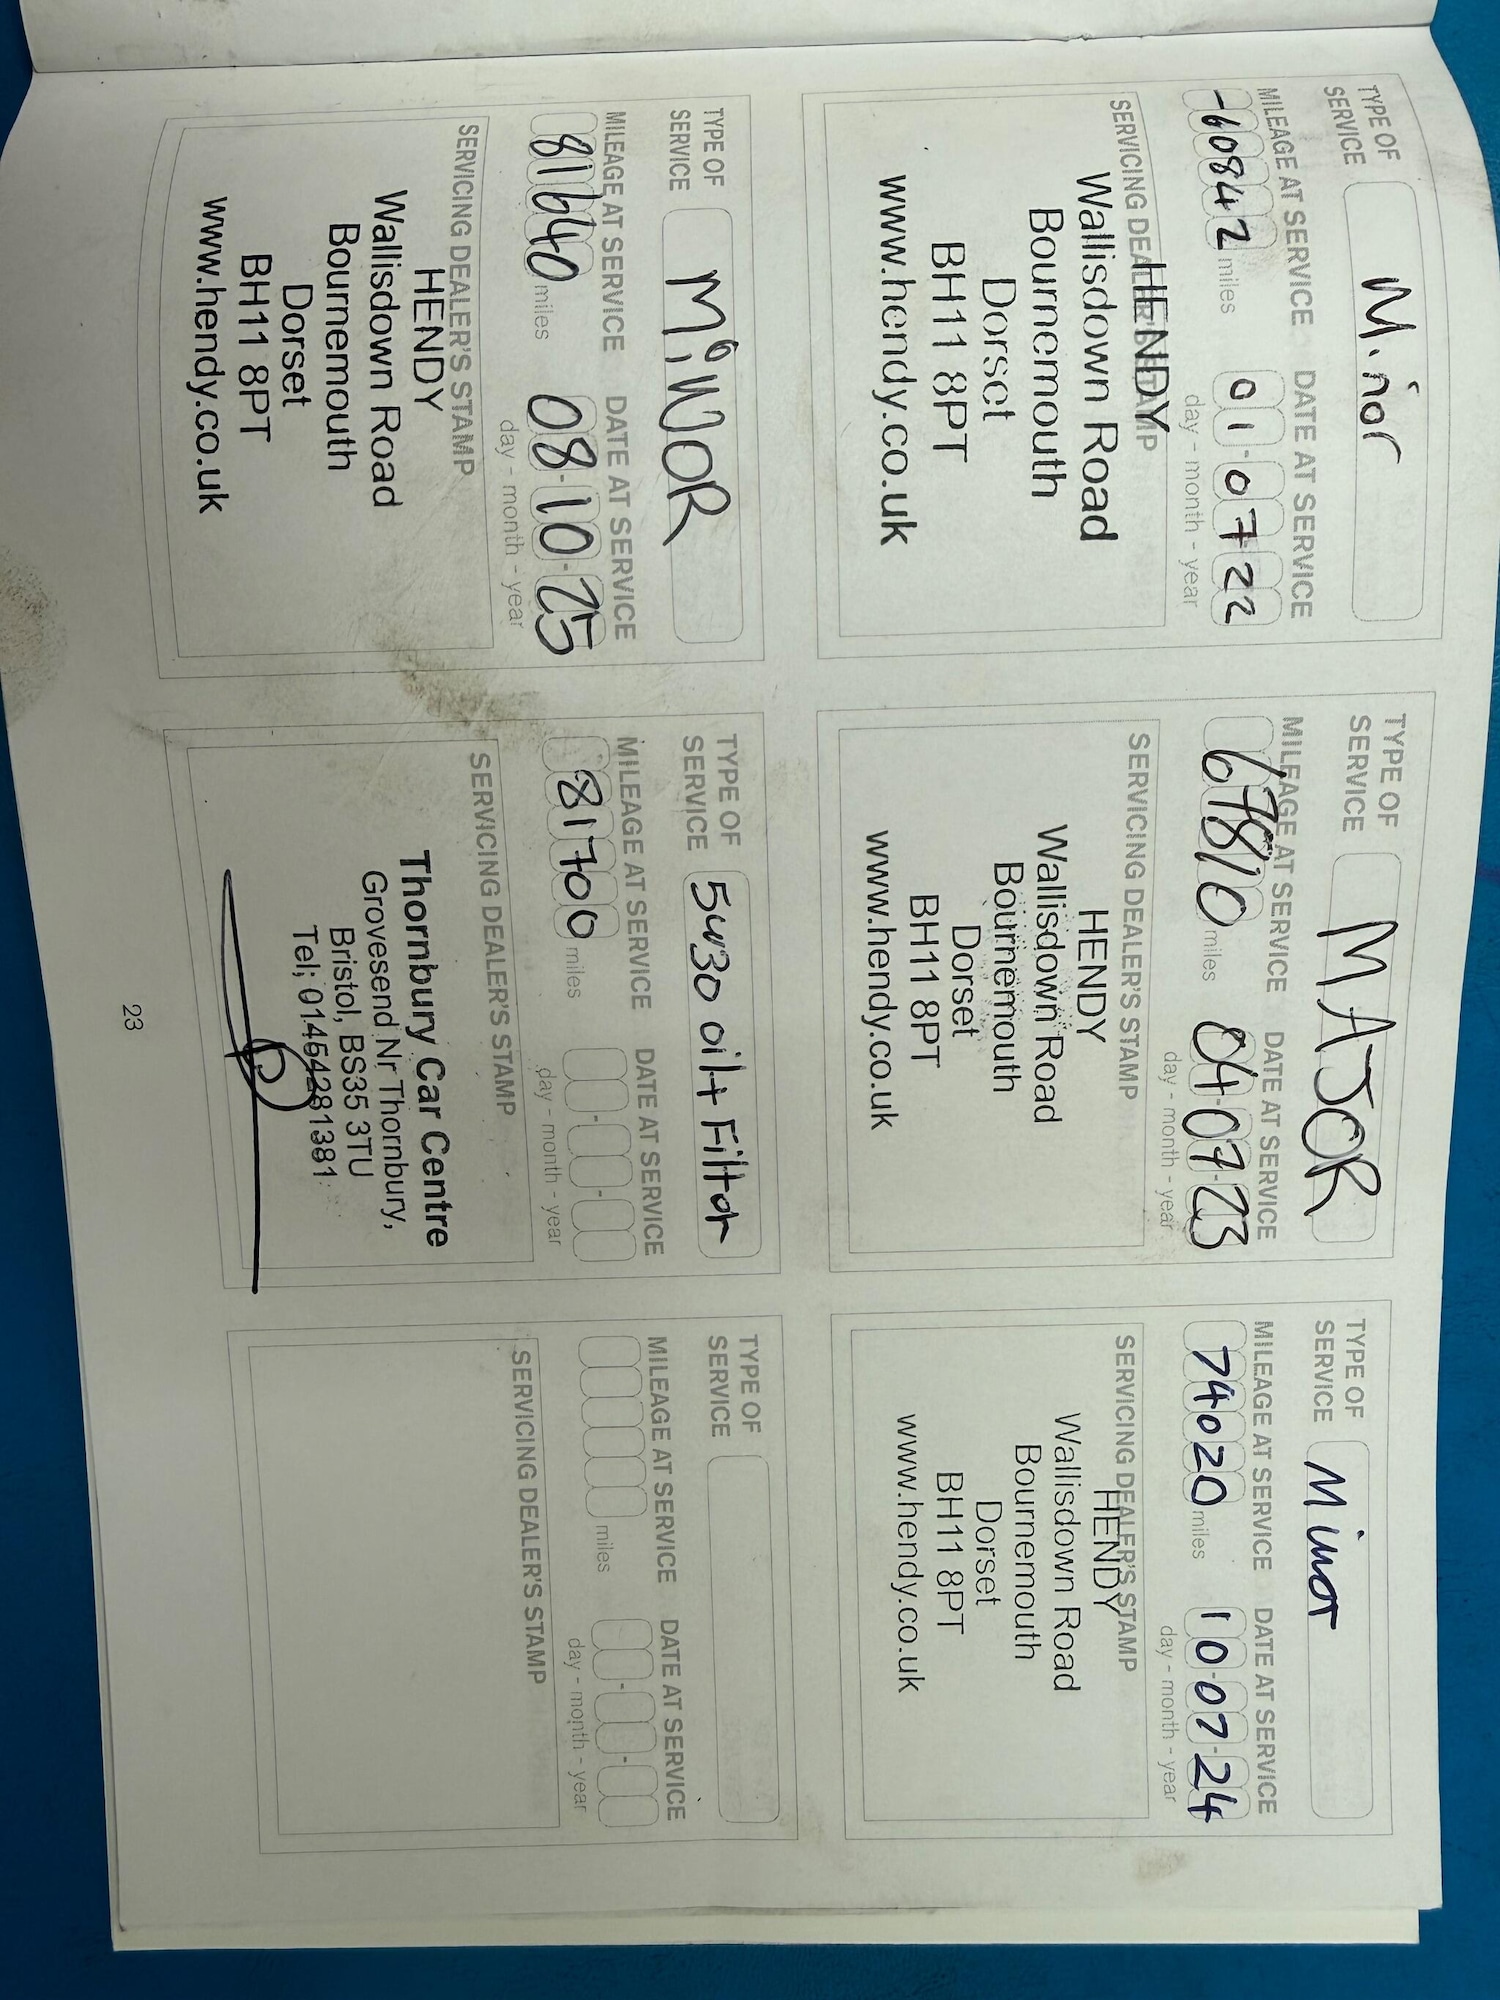 TYPE OF
SERVICE
Minor
MILEAGE AT SERVICE DATE AT SERVICE
-60842 miles 01-07-22
day - month - year
SERVICING DEALER'S STAMP
HENDY
Wallisdown Road
Bournemouth
Dorset
BH11 8PT
www.hendy.co.uk
TYPE OF
SERVICE
MAJOR
MILEAGE AT SERVICE DATE AT SERVICE
67810 miles 04-07-23
day - month - year
SERVICING DEALER'S STAMP
HENDY
Wallisdown Road
Bournemouth
Dorset
BH11 8PT
www.hendy.co.uk
TYPE OF
SERVICE
Minor
MILEAGE AT SERVICE DATE AT SERVICE
74020 miles 10-07-24
day - month - year
SERVICING DEALER'S STAMP
HENDY
Wallisdown Road
Bournemouth
Dorset
BH11 8PT
www.hendy.co.uk
TYPE OF
SERVICE
MiNOR
MILEAGE AT SERVICE DATE AT SERVICE
81640 miles 08-10-25
day - month - year
SERVICING DEALER'S STAMP
HENDY
Wallisdown Road
Bournemouth
Dorset
BH11 8PT
www.hendy.co.uk
TYPE OF
SERVICE
5w30 oil + Filter
MILEAGE AT SERVICE DATE AT SERVICE
81700 miles
day - month - year
SERVICING DEALER'S STAMP
Thornbury Car Centre
Grovesend Nr Thornbury,
Bristol, BS35 3TU
Tel; 01454281381
TYPE OF
SERVICE
MILEAGE AT SERVICE DATE AT SERVICE
miles
day - month - year
SERVICING DEALER'S STAMP
23